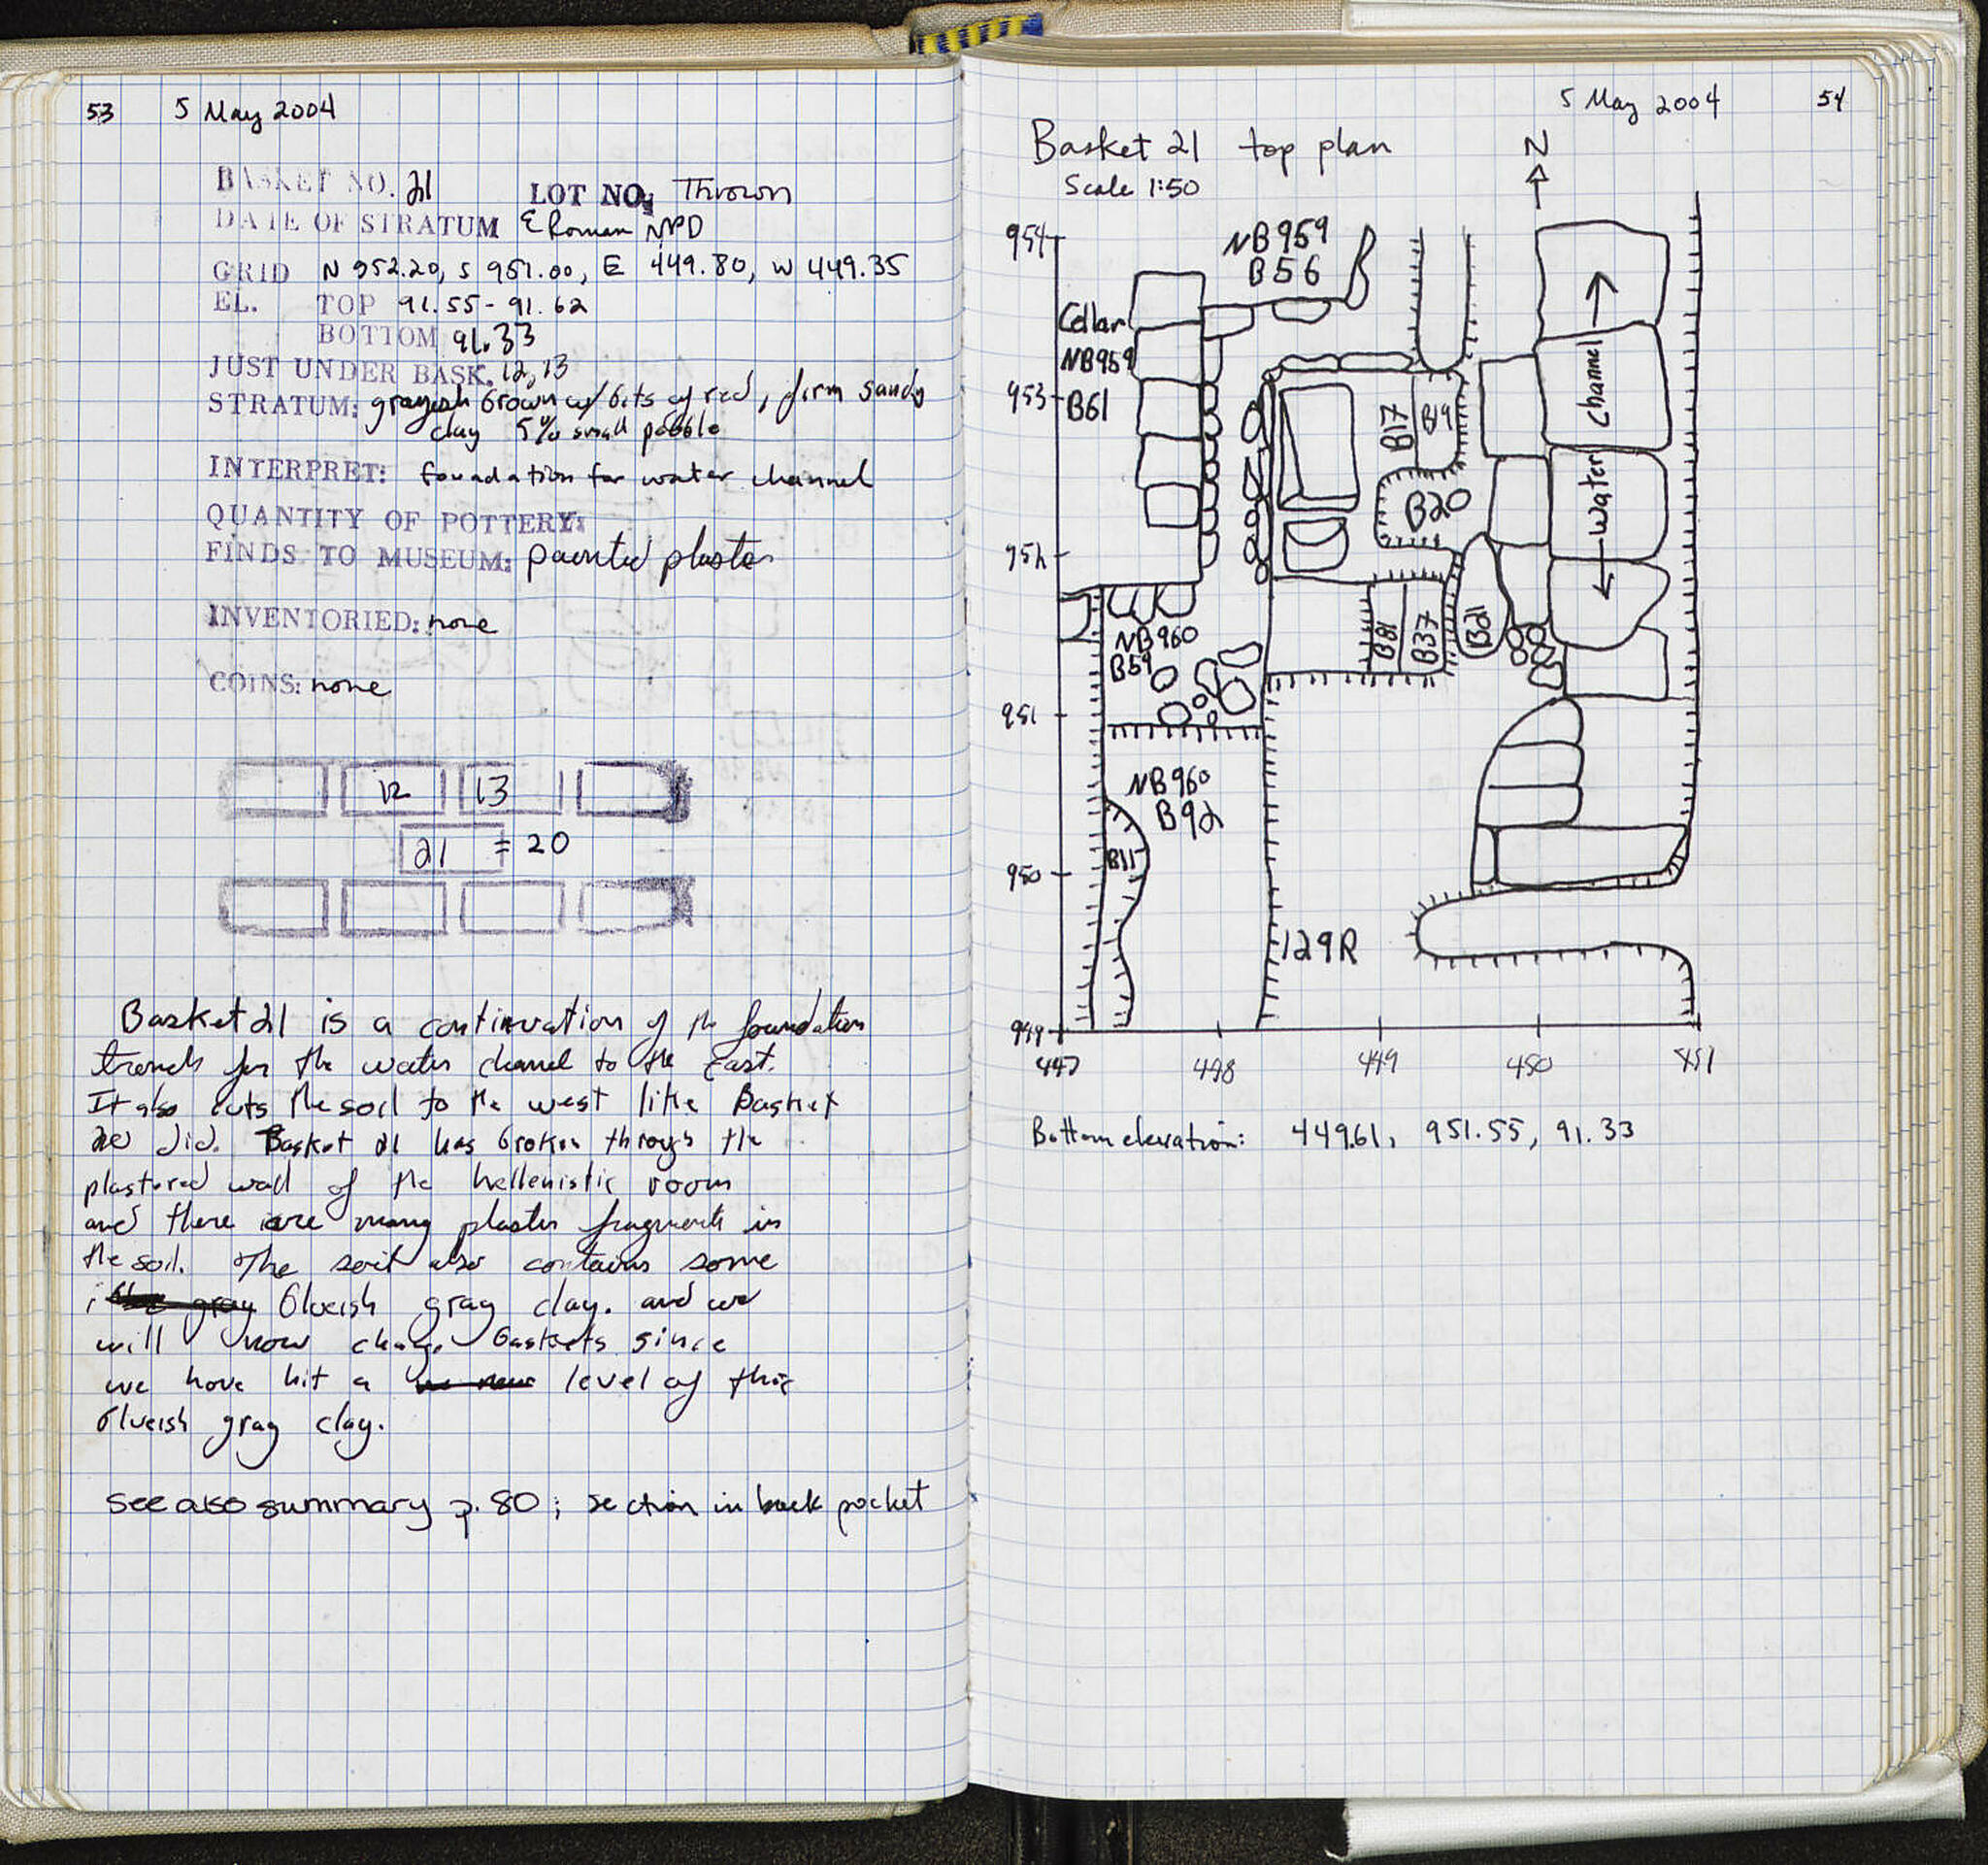 53 5 May 2004
BASKET NO. 21 LOT NO. Thrown
DATE OF STRATUM E Roman NPD
GRID N 952.20, S 951.00, E 449.80, W 449.35
EL. TOP 91.55 - 91.62
BOTTOM 91.33
JUST UNDER BASK. 12, 13
STRATUM: grayish brown w/ bits of red, firm sandy
clay 5% small pebble
INTERPRET: foundation for water channel
QUANTITY OF POTTERY:
FINDS TO MUSEUM: painted plaster
INVENTORIED: none
COINS: none
12 13
21 = 20
Basket 21 is a continuation of the foundation
trench for the water channel to the East.
It also cuts the soil to the west like Basket
20 did. Basket 21 has broken through the
plastered wall of the hellenistic room
and there are many plaster fragments in
the soil. The soil also contains some
gray blueish gray clay. and we
will now change baskets since
we have hit a new level of this
blueish gray clay.
See also summary p. 80; section in back pocket
5 May 2004 54
Basket 21 top plan
Scale 1:50
N
954
NB959
B56
Cellar
NB959
953
B61
B17
B19
B20
channel
water
952
NB960
B59
B81
B37
B21
951
NB960
B92
B11
950
129R
949
447 448 449 450 451
Bottom elevation: 449.61, 951.55, 91.33